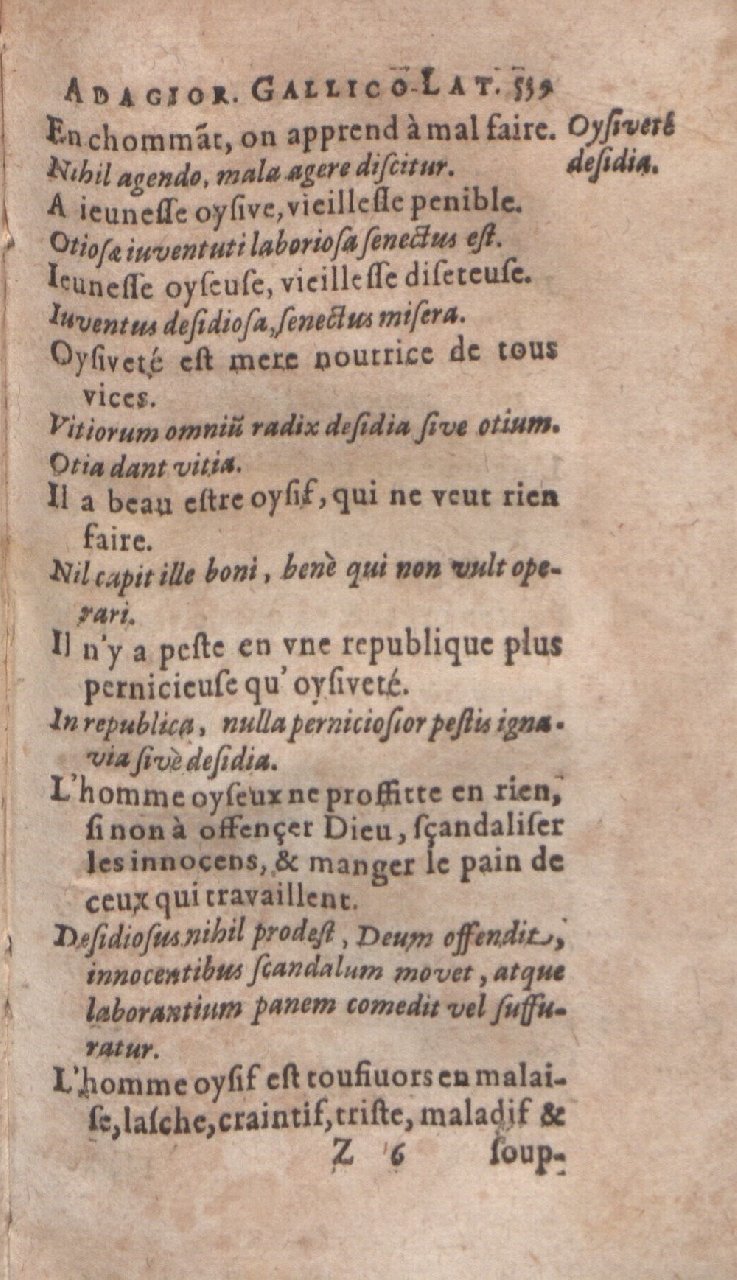 ADAGIOR. GALLICO-LAT. 559
En chommãt, on apprend à mal faire.
Oysiveté
Nihil agendo, mala agere discitur.
desidia.
A ieunesse oysive, vieillesse penible.
Otiosæ iuventuti laboriosa senectus est.
Ieunesse oyseuse, vieillesse diseteuse.
Iuventus desidiosa, senectus misera.
Oysiveté est mere nourrice de tous
vices.
Vitiorum omniũ radix desidia sive otium.
Otia dant vitia.
Il a beau estre oysif, qui ne veut rien
faire.
Nil capit ille boni, benè qui non vult ope-
rari.
Il n'y a peste en vne republique plus
pernicieuse qu'oysiveté.
In republica, nulla perniciosior pestis igna-
via sivè desidia.
L'homme oyseux ne proffitte en rien,
si non à offençer Dieu, sçandaliser
les innocens, & manger le pain de
ceux qui travaillent.
Desidiosus nihil prodest, Deum offendit,
innocentibus scandalum movet, atque
laborantium panem comedit vel suffu-
ratur.
L'homme oysif est tousiuors en malai-
se, lasche, craintif, triste, maladif &
Z 6 soup-